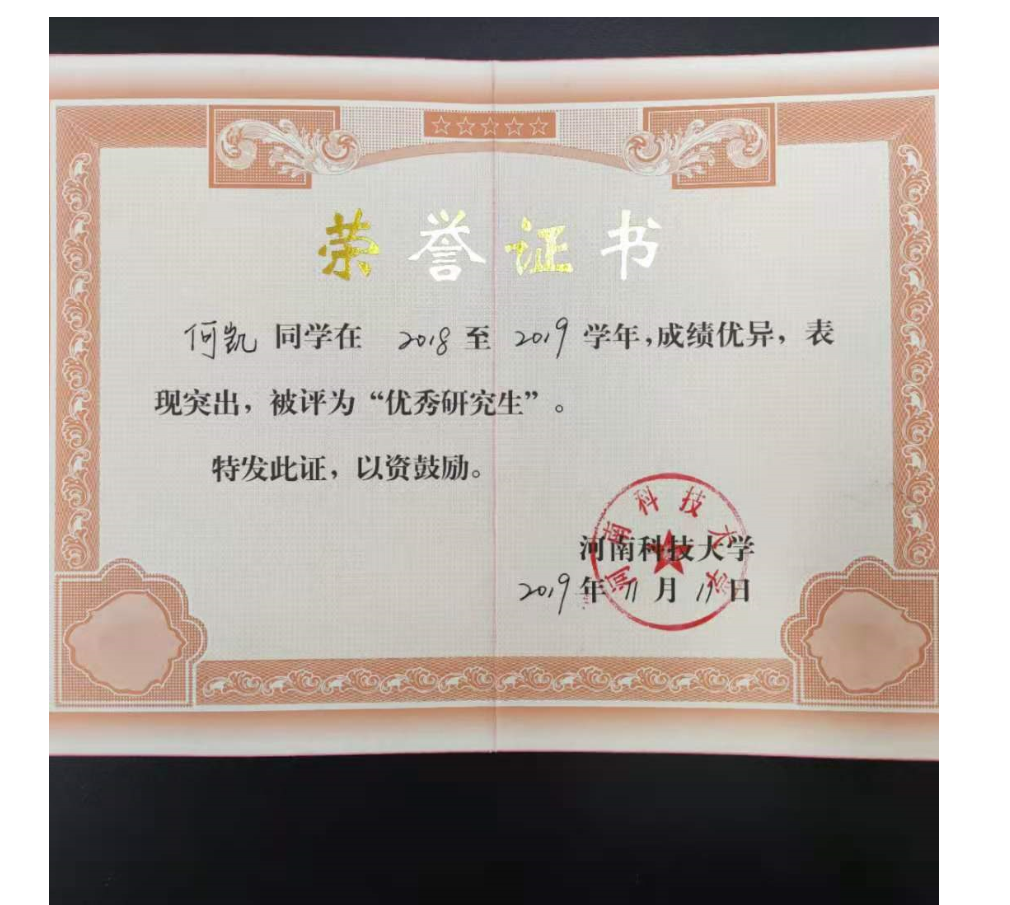 荣誉证书
何凯 同学在 2018 至 2019 学年,成绩优异，表
现突出，被评为“优秀研究生”。
特发此证，以资鼓励。
河南科技大学
2019 年 11 月 19 日
河南科技大学